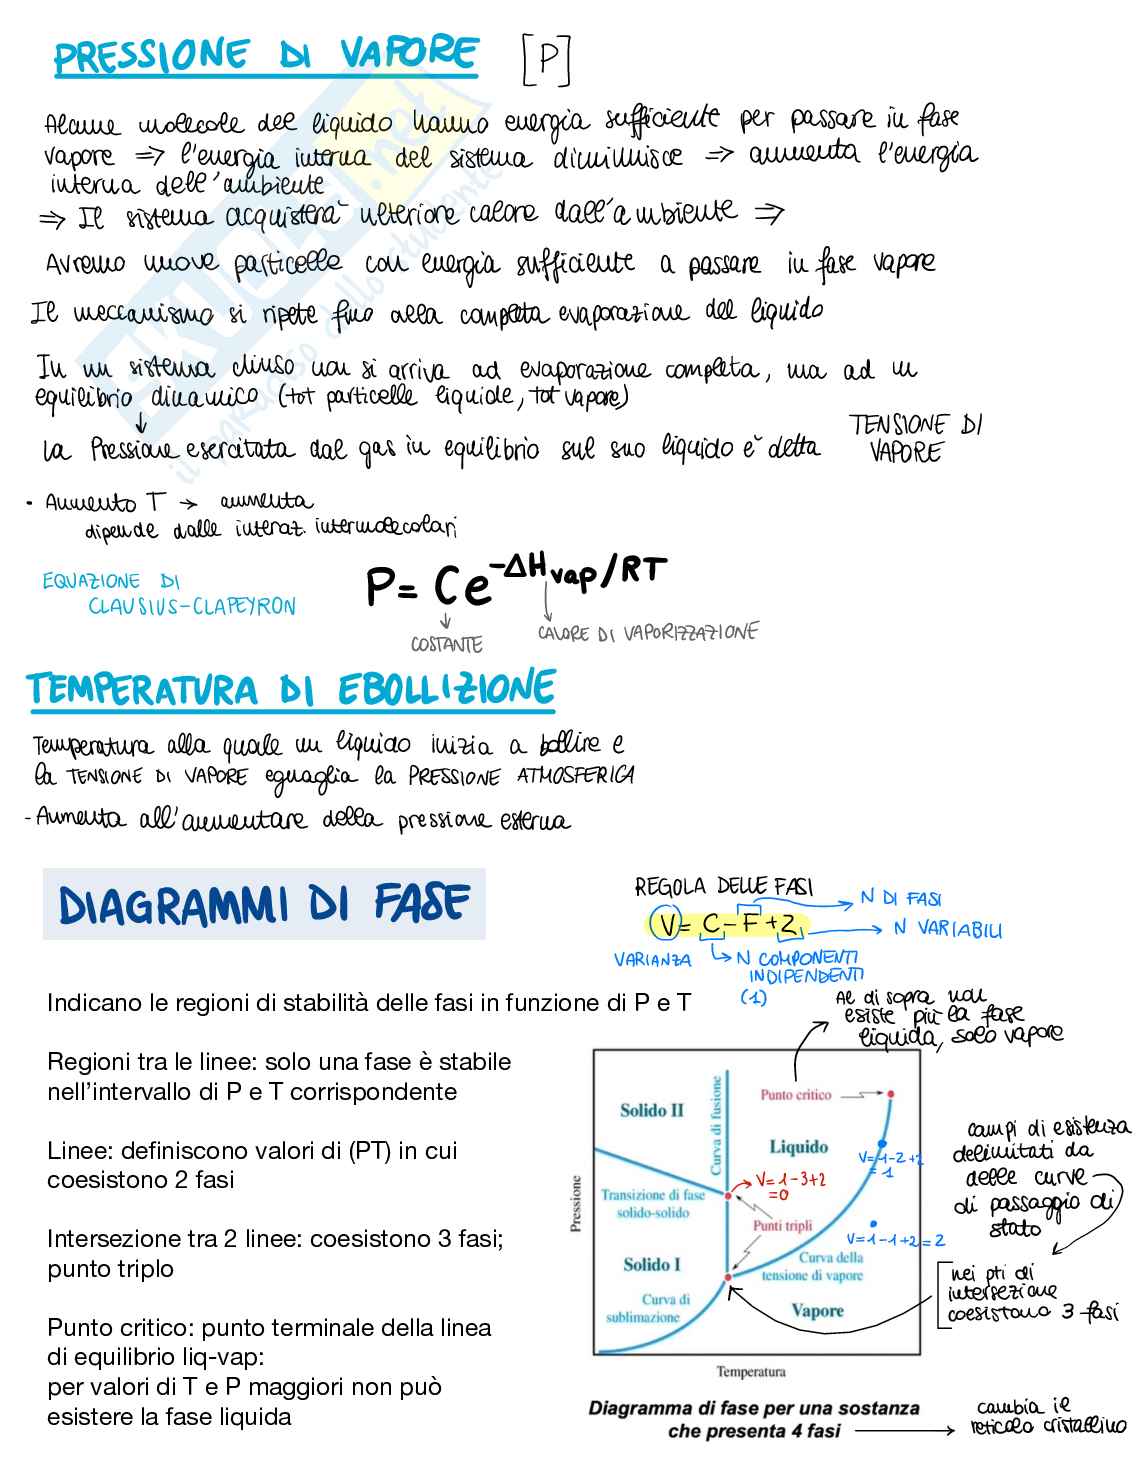 PRESSIONE DI VAPORE [P]
Alcune molecole del liquido hanno energia sufficiente per passare in fase
vapore => l'energia interna del sistema diminuisce => aumenta l'energia
interna dell'ambiente
=> Il sistema acquisterà ulteriore calore dall'ambiente =>
Avremo nuove particelle con energia sufficiente a passare in fase vapore
Il meccanismo si ripete fino alla completa evaporazione del liquido
In un sistema chiuso non si arriva ad evaporazione completa, ma ad un
equilibrio dinamico (tot particelle liquide, tot vapore)
↓
la Pressione esercitata dal gas in equilibrio sul suo liquido è detta TENSIONE DI
VAPORE
• Aumento T → aumenta
dipende dalle interaz. intermolecolari
EQUAZIONE DI
CLAUSIUS-CLAPEYRON
P = Ce^-ΔHvap/RT
COSTANTE
CALORE DI VAPORIZZAZIONE
TEMPERATURA DI EBOLLIZIONE
Temperatura alla quale un liquido inizia a bollire e
la TENSIONE DI VAPORE eguaglia la PRESSIONE ATMOSFERICA
- Aumenta all'aumentare della pressione esterna
DIAGRAMMI DI FASE
REGOLA DELLE FASI
V = C - F + 2
N DI FASI
N VARIABILI
VARIANZA
N COMPONENTI
INDIPENDENTI
(1)
Indicano le regioni di stabilità delle fasi in funzione di P e T
Regioni tra le linee: solo una fase è stabile
nell'intervallo di P e T corrispondente
Linee: definiscono valori di (PT) in cui
coesistono 2 fasi
Intersezione tra 2 linee: coesistono 3 fasi;
punto triplo
Punto critico: punto terminale della linea
di equilibrio liq-vap:
per valori di T e P maggiori non può
esistere la fase liquida
Al di sopra non
esiste più la fase
liquida, solo vapore
Pressione
Solido II
Curva di fusione
Punto critico
Liquido
V=1-2+2
=1
Transizione di fase
solido-solido
V=1-3+2
=0
Punti tripli
V=1-1+2=2
Solido I
Curva della
tensione di vapore
Curva di
sublimazione
Vapore
Temperatura
Diagramma di fase per una sostanza
che presenta 4 fasi
cambia il
reticolo cristallino
campi di esistenza
delimitati da
delle curve
di passaggio di
stato
nei pti di
intersezione
coesistono 3 fasi
SKUOLA.net
il paradiso dello studente